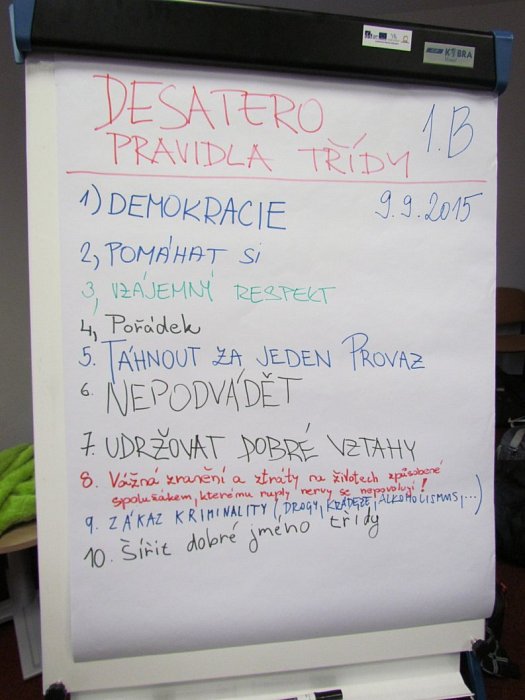 KOBRA
DESATERO
PRAVIDLA TŘÍDY
1.B
9.9.2015
1) DEMOKRACIE
2, POMÁHAT SI
3, VZÁJEMNÝ RESPEKT
4, Pořádek
5. TÁHNOUT ZA JEDEN PROVAZ
6. NEPODVÁDĚT
7. UDRŽOVAT DOBRÉ VZTAHY
8. Vážná zranění a ztráty na životech způsobené
spolužákem, kterému ruply nervy se nepovolují!
9. ZÁKAZ KRIMINALITY (DROGY, KRÁDEŽE, ALKOHOLISMUS,...)
10. Šířit dobré jméno třídy